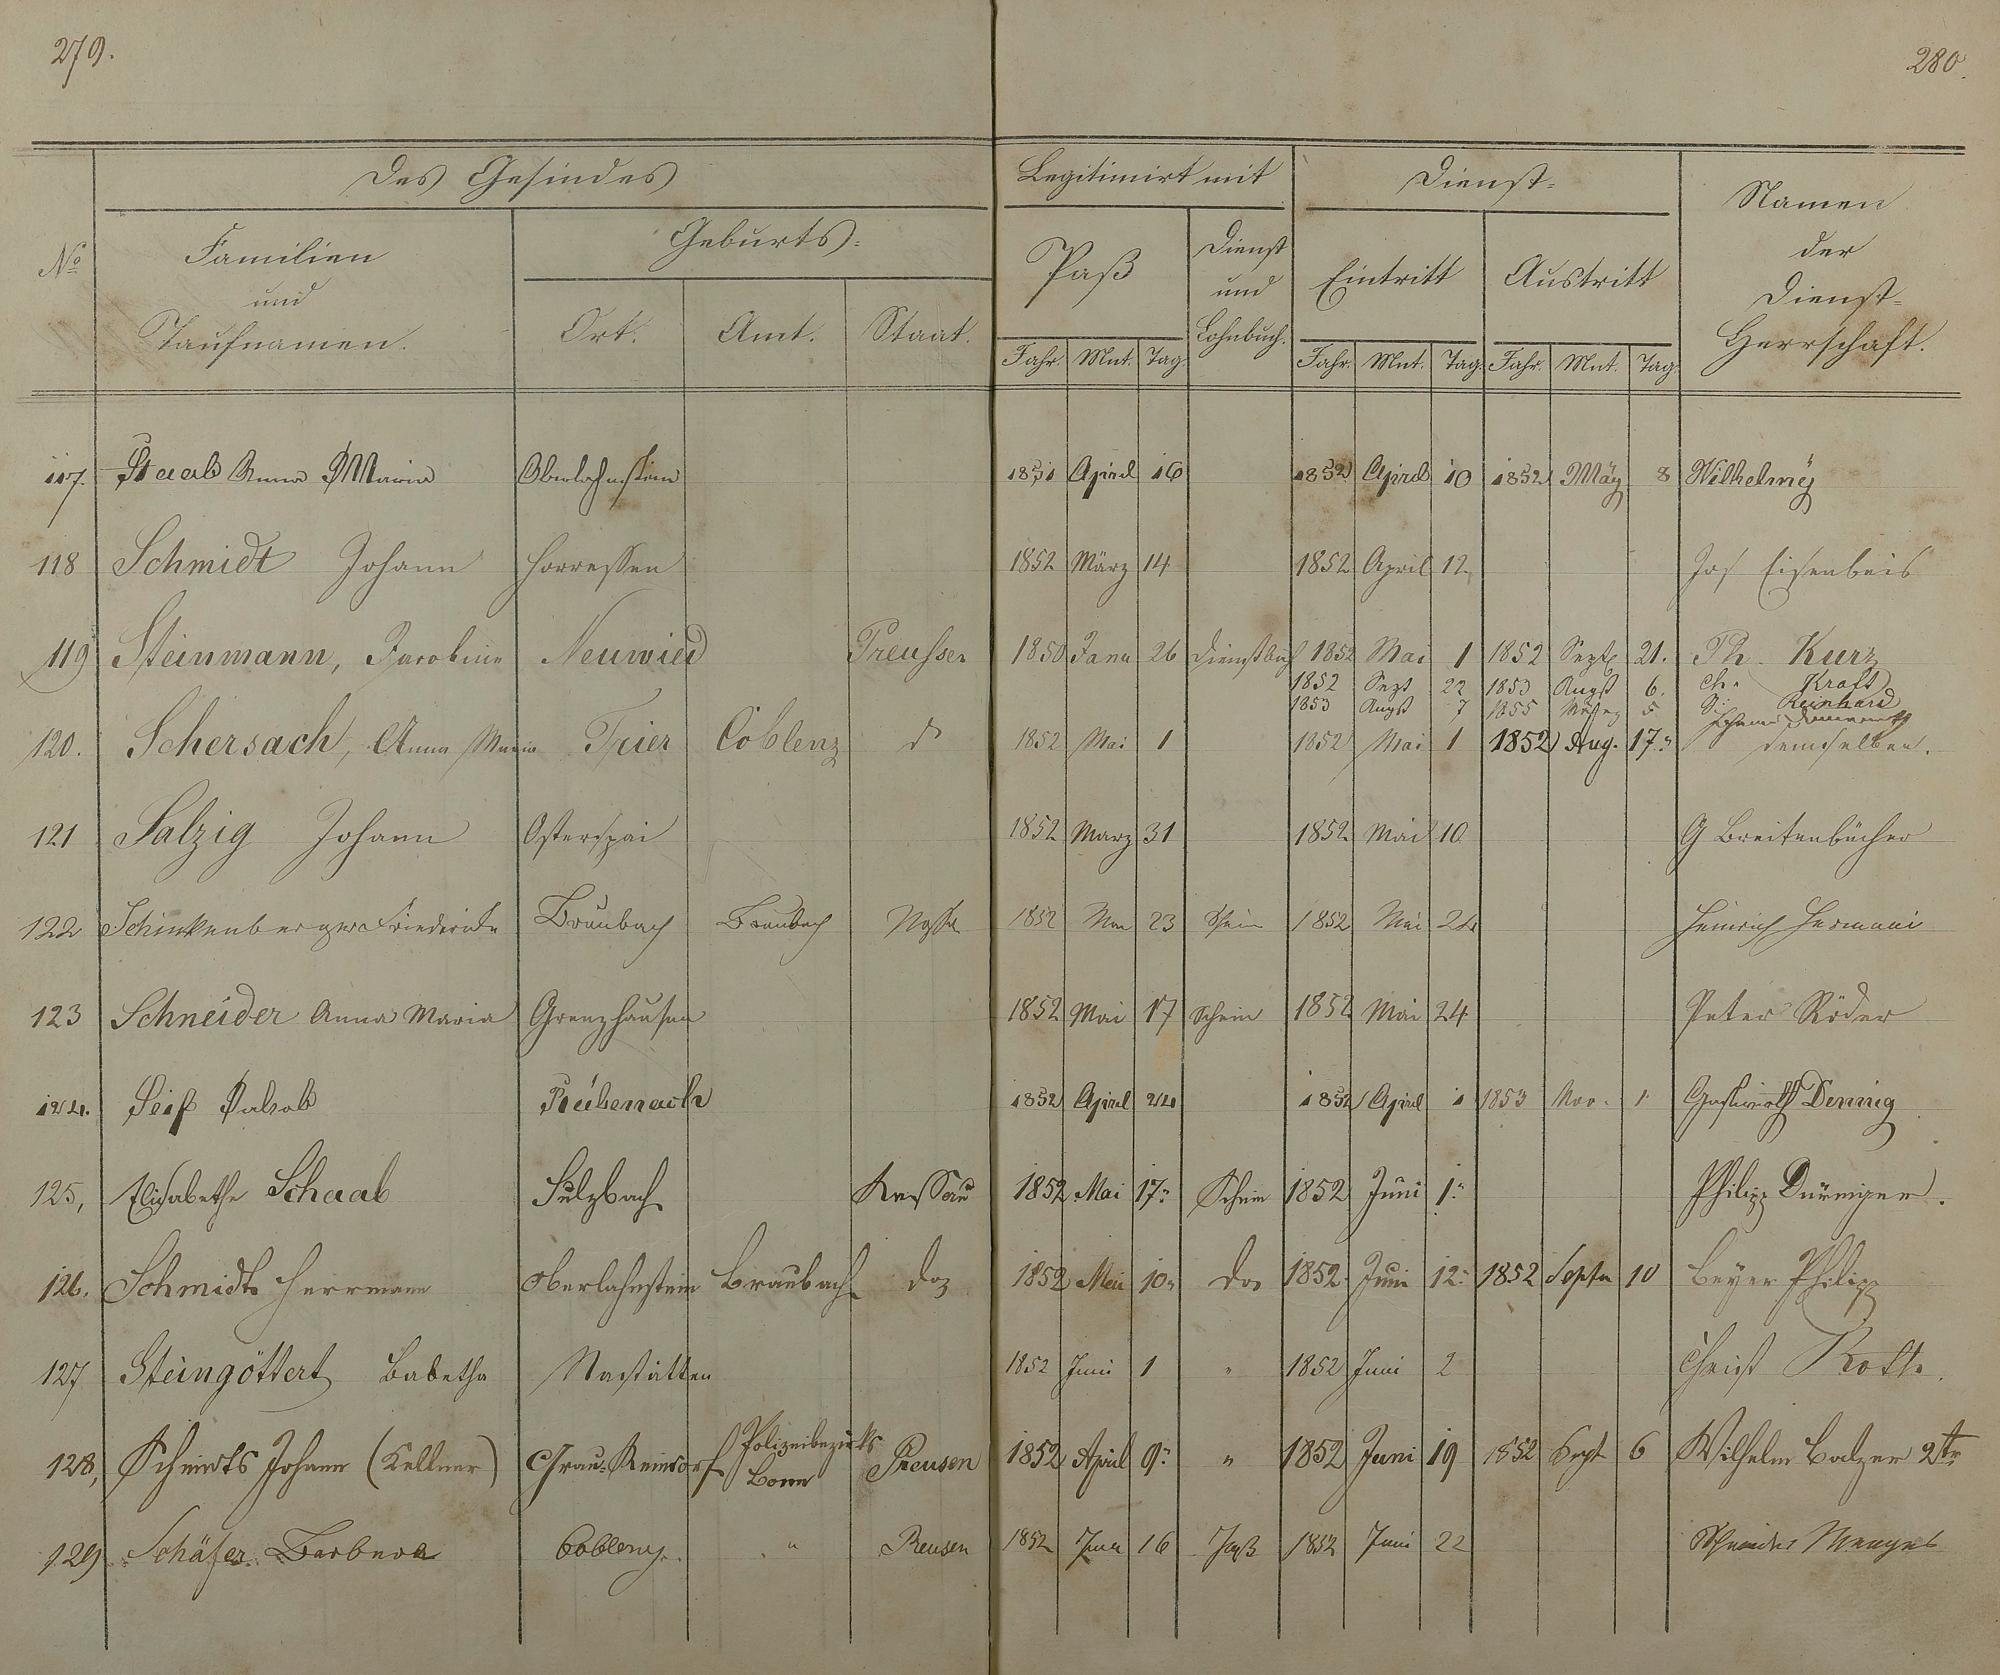 279.
280.
Des Gesindes
Legitimirt mit
Dienst-
Namen
der
Dienst-
Herrschaft.
No
Familien
und
Taufnamen.
Geburts-
Ort. Amt. Staat.
Paß
Dienst
und
Lohnbuch.
Eintritt
Austritt
Jahr. Mnt. Tag.
Jahr. Mnt. Tag. Jahr. Mnt. Tag.
117. Staab Anna Maria Oberlahnstein 1851 April 16 1852 April 10 1852 May 8 Wilhelmy
118 Schmidt Johann Horressen 1852 März 14 1852 April 12 Jos Eisenbeis
119 Steinmann, Jacobine Neuwied Preussen 1850 Janu 26 Dienstbuch 1852 Mai 1 1852 Sept 21. Ph. Kurz
1852 Sept 22 1853 Augst 6. Chr Kraft
1853 Augst 7 1855 5 Reinhard
120. Schersach, Anna Maria Trier Coblenz d 1852 Mai 1 1852 Mai 1 1852 Aug. 17. demselben.
121 Salzig Johann Osterspai 1852 Marz 31 1852 Mai 10 G Breitenbücher
122 Schinkenberger Friederike Braubach Braubach Nassa 1852 Mai 23 Schein 1852 Mai 24 Heinrich Hermani
123 Schneider Anna Maria Grenzhausen 1852 Mai 17 Schein 1852 Mai 24 Peter Röder
124. Seif Jakob Rübenach 1852 April 24 1852 April 1 1853 Nov. 1 Gastwirth Dennig
125, Elisabethe Schaab Sulzbach Nassau 1852 Mai 17. Schein 1852 Juni 1. Philipp
126. Schmidt Herrmann Oberlahnstein Braubach do 1852 Mai 10. do 1852 Juni 12. 1852 Septm 10 Beyer Philipp
127 Steingöttert Babetha Nastätten 1852 Juni 1 " 1852 Juni 2 Christ
128, Schmidts Johann (Kellner) Grau-Reindorf Polizeibezirks Bonn Preusen 1852 April 9. " 1852 Juni 19 1852 Sept 6 Wilhelm Balzer 2tr
129 Schäfer Barbara Coblenz. " Preusen 1852 Juni 16 Paß 1852 Juni 22 Schneider Menges